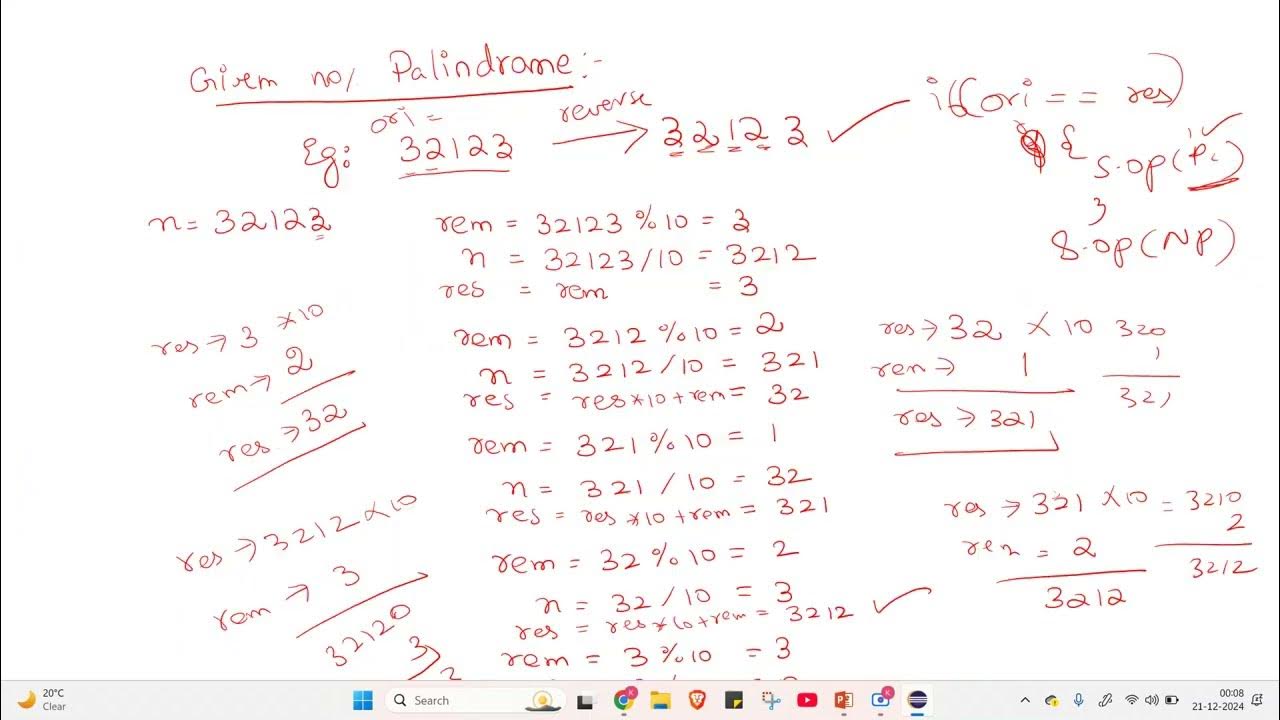 Given no/. Palindrome:-
ori =
reverse
Eg: 32123 → 32123 ✓
if(ori == res)
{
s.op(P.)
}
s.op(NP)
n = 32123
rem = 32123 % 10 = 3
n = 32123/10 = 3212
res = rem = 3
res → 3 ×10
rem → 2
res → 32
rem = 3212 % 10 = 2
n = 3212/10 = 321
res = res*10+rem = 32
res → 32 × 10
rem → 1
res → 321
320
1
321
rem = 321 % 10 = 1
n = 321/10 = 32
res = res*10+rem = 321
res → 321 ×10 = 3210
rem = 2
3212
2
3212
res → 3212 ×10
rem → 3
32120
3
rem = 32 % 10 = 2
n = 32/10 = 3
res = res*10+rem = 3212 ✓
rem = 3 % 10 = 3
20°C
Clear
Search
00:08
21-12-2024